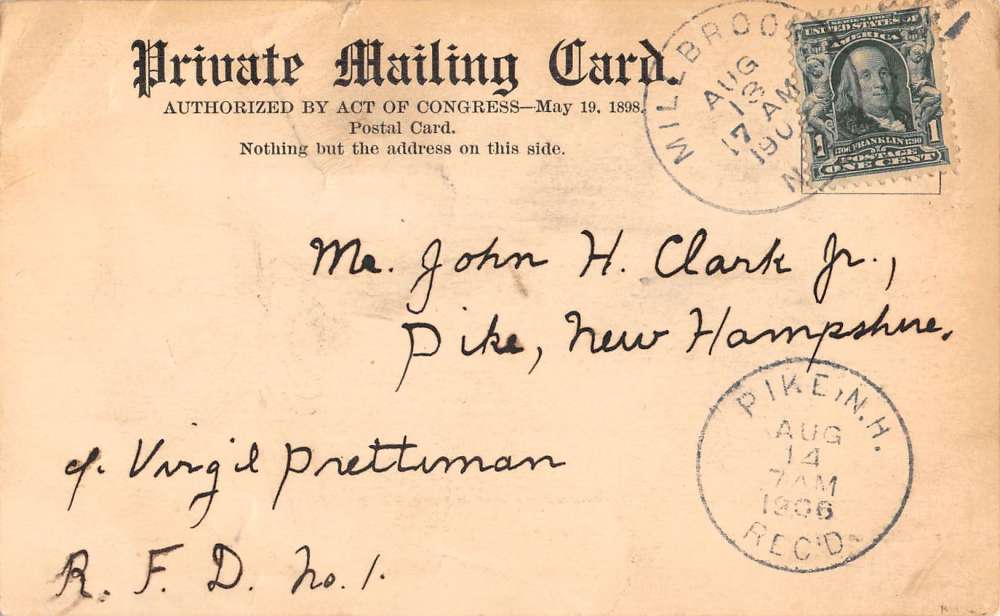 Private Mailing Card.
AUTHORIZED BY ACT OF CONGRESS—May 19, 1898.
Postal Card.
Nothing but the address on this side.
MILLBROO
AUG
13
7 AM
190
N
SERIES 1902
UNITED STATES OF
AMERICA
1706 FRANKLIN 1790
1 POSTAGE 1
ONE CENT
Mr. John H. Clark Jr.,
Pike, New Hampshire.
PIKE, N.H.
AUG
14
7 AM
1906
REC'D
c/. Virgil Prettiman
R. F. D. No. 1.